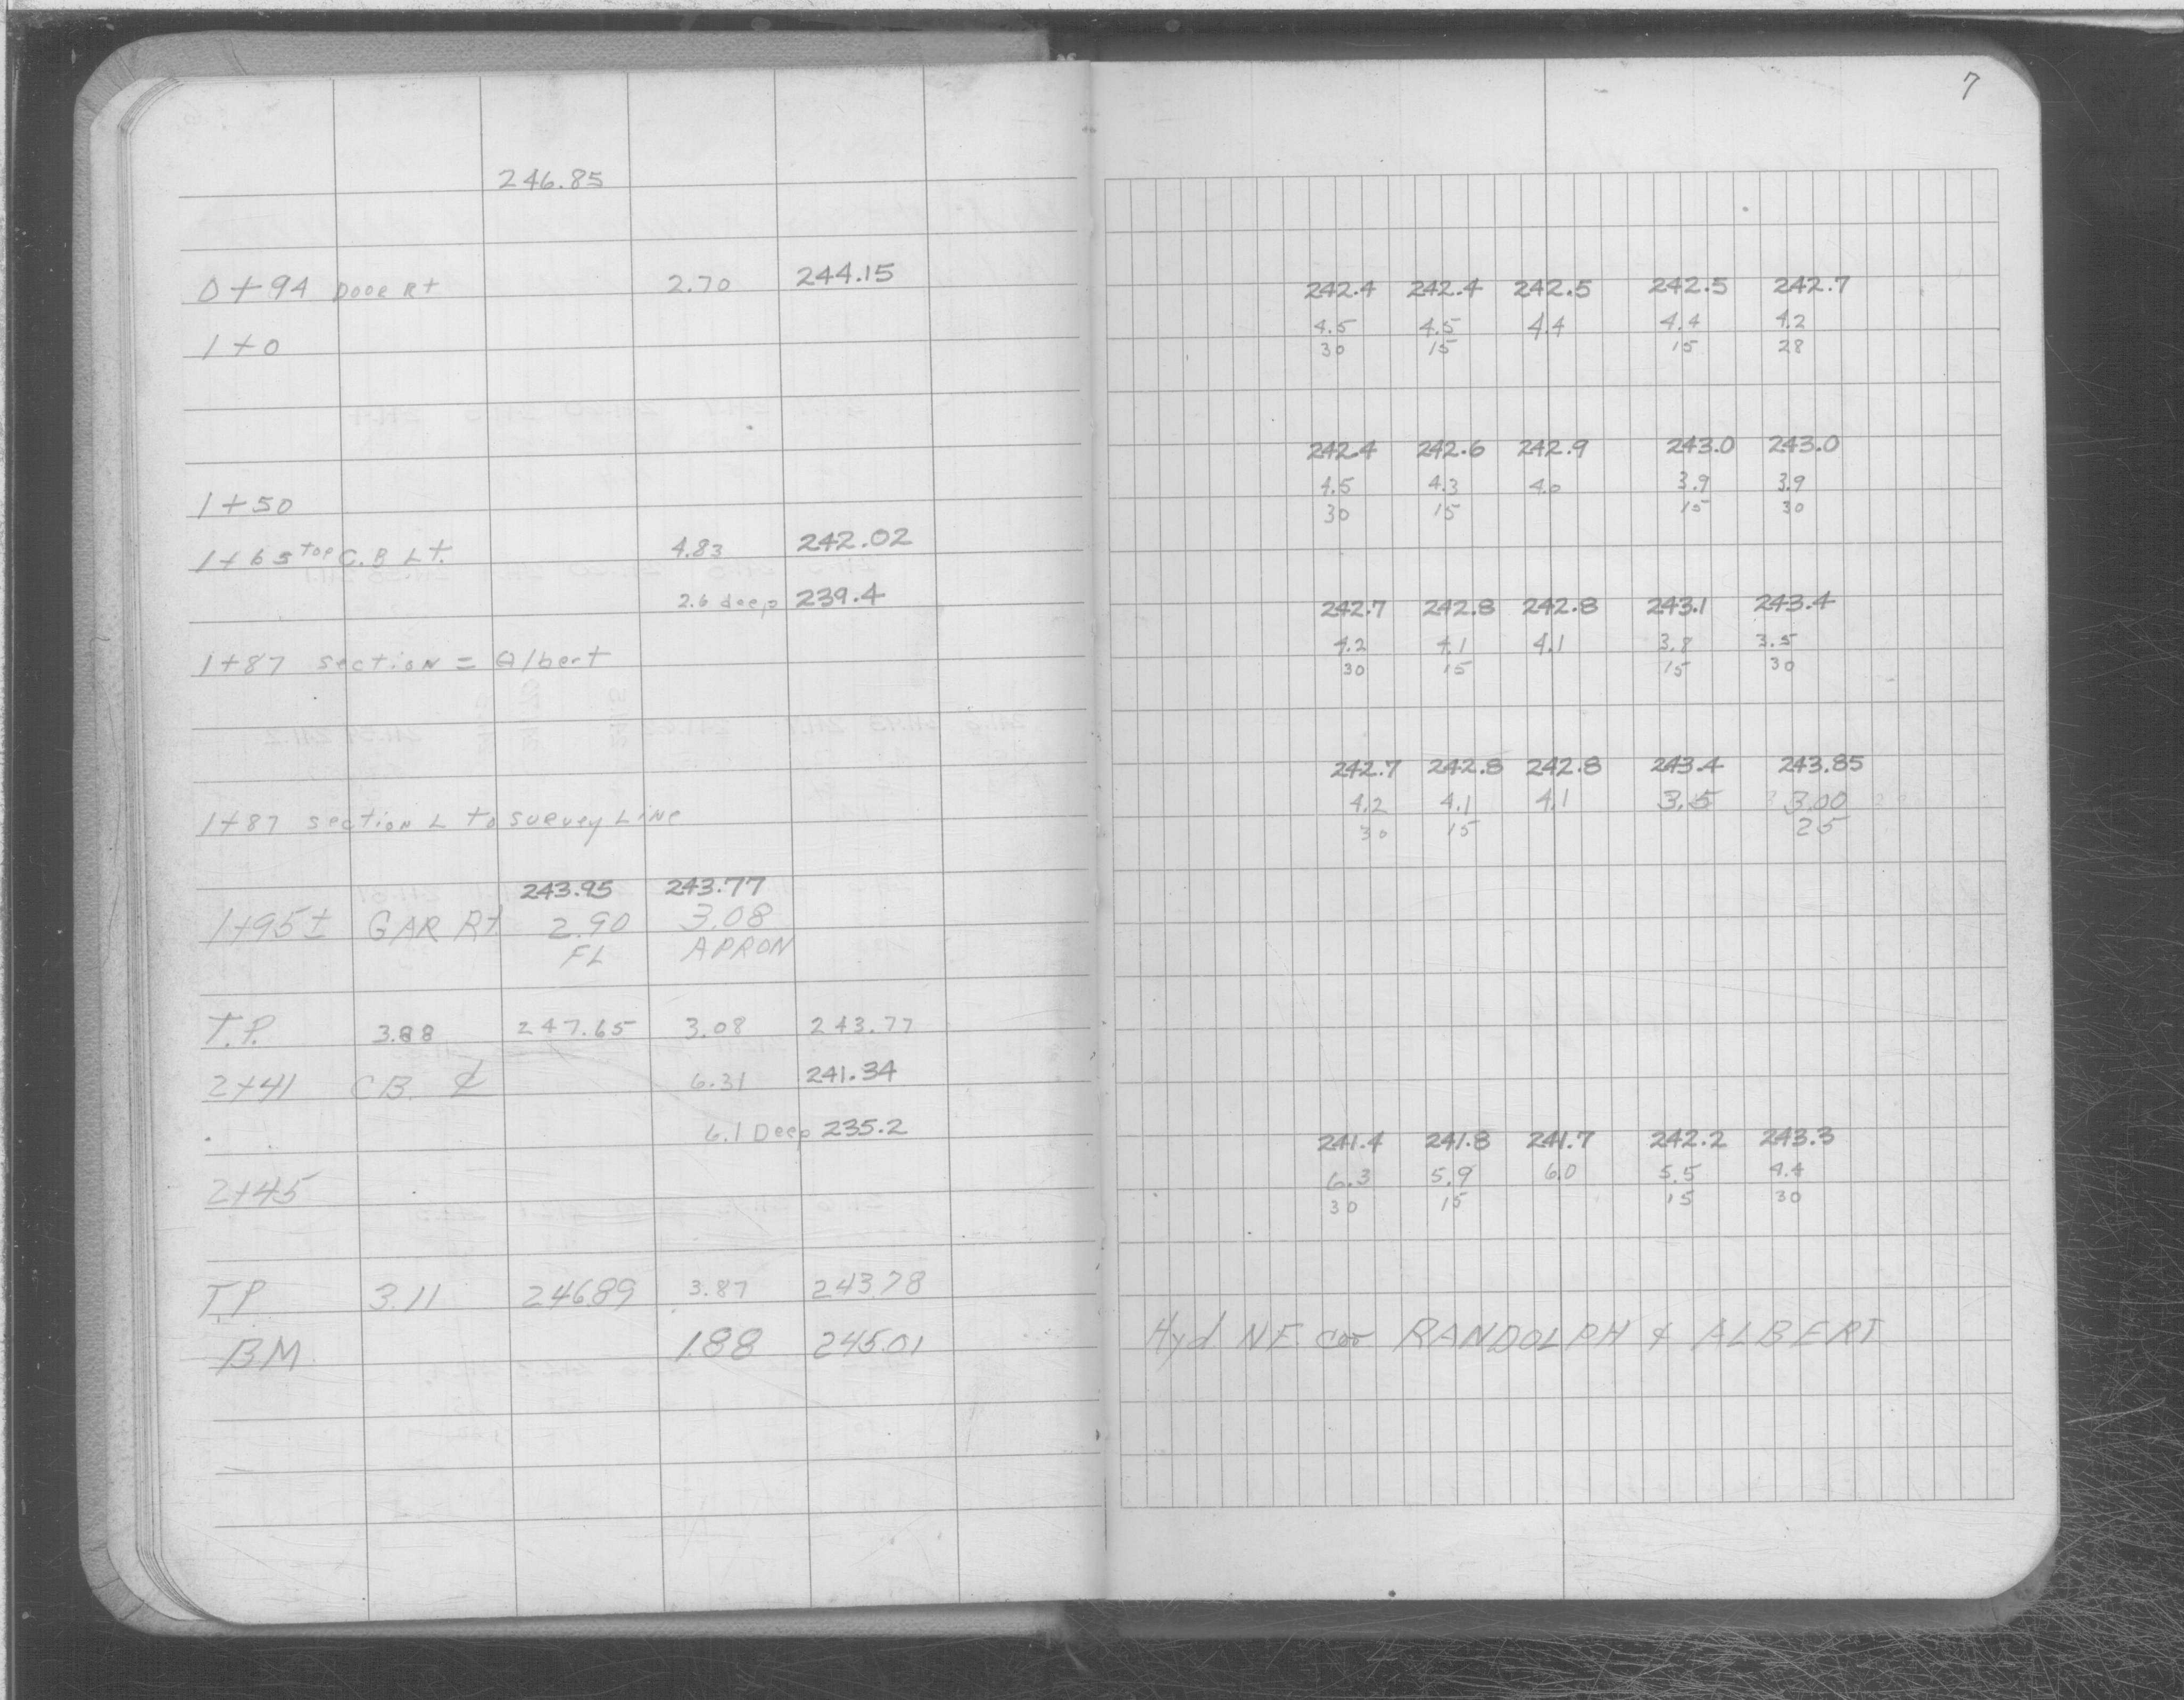 7
246.85
0+94 Door Rt 2.70 244.15
242.4 242.4 242.5 242.5 242.7
4.5 4.5 4.4 4.4 4.2
1+0
30 15 15 28
242.4 242.6 242.9 243.0 243.0
4.5 4.3 4.0 3.9 3.9
1+50
30 15 15 30
1+65 Top C.B Lt. 4.83 242.02
2.6 deep 239.4
242.7 242.8 242.8 243.1 243.4
4.2 4.1 4.1 3.8 3.5
1+87 section = Albert
30 15 15 30
242.7 242.8 242.8 243.4 243.85
4.2 4.1 4.1 3.5 3.00
1+87 section L to survey Line
30 15 25
243.95 243.77
1+95± GAR Rt 2.90 3.08
FL APRON
T.P. 3.88 247.65 3.08 243.77
2+41 CB. ℄ 6.31 241.34
6.1 Deep 235.2
241.4 241.8 241.7 242.2 243.3
6.3 5.9 6.0 5.5 4.4
2+45
30 15 15 30
T.P. 3.11 246.89 3.87 243.78
BM 1.88 245.01 Hyd. N.E. cor RANDOLPH & ALBERT